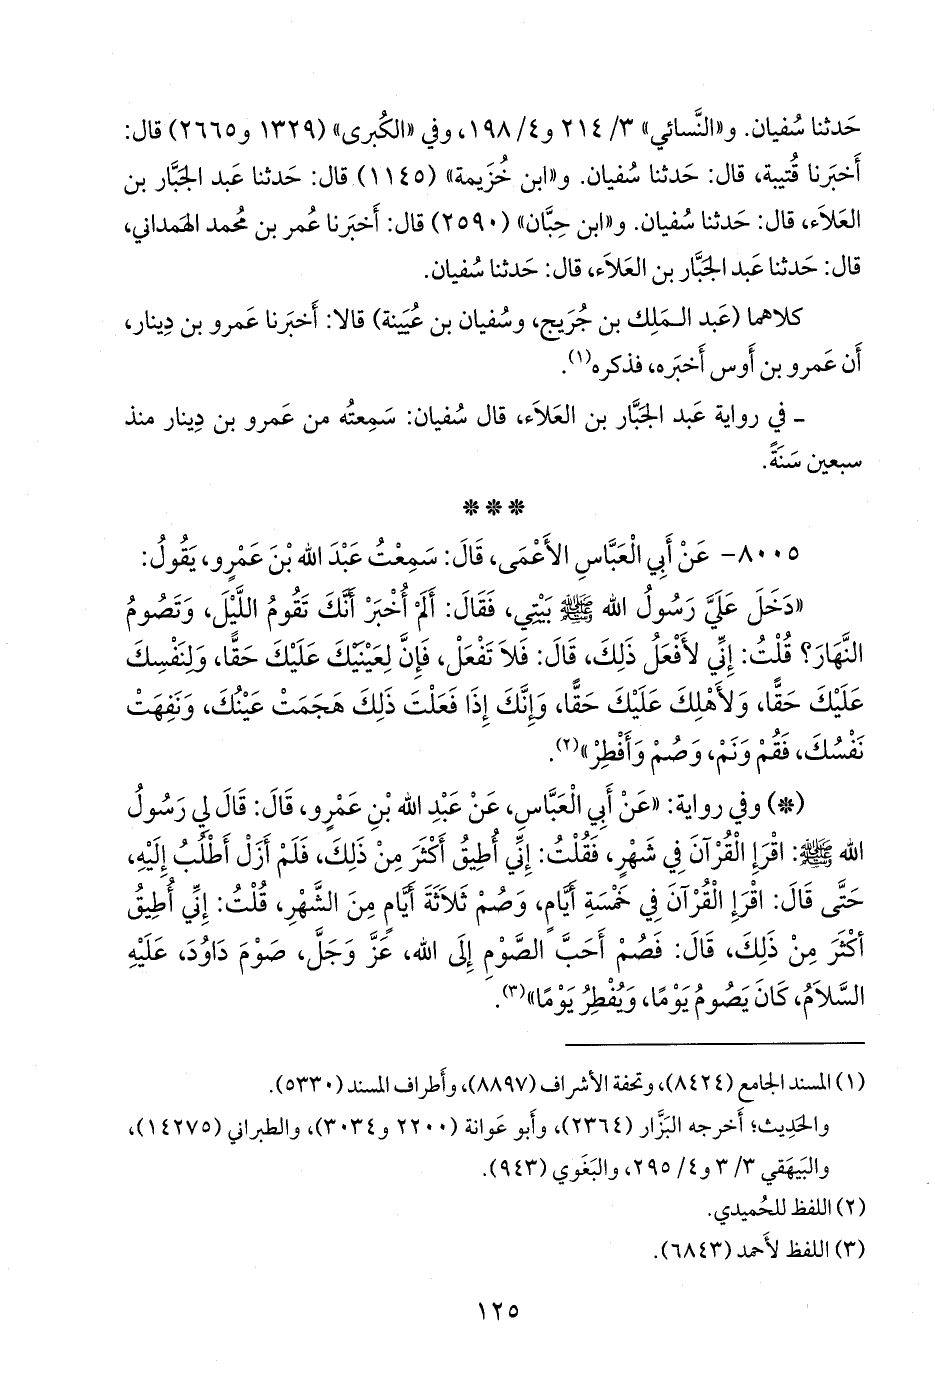 حَدثنا سُفيان. و«النَّسائي» ٣/ ٢١٤ و٤/ ١٩٨، وفي «الكُبرى» (١٣٢٩ و٢٦٦٥) قال:
أَخبَرنا قُتيبة، قال: حَدثنا سُفيان. و«ابن خُزيمة» (١١٤٥) قال: حَدثنا عَبد الجَبَّار بن
العَلاَء، قال: حَدثنا سُفيان. و«ابن حِبَّان» (٢٥٩٠) قال: أَخبَرنا عُمر بن مُحمد الهَمداني،
قال: حَدثنا عَبد الجَبَّار بن العَلاَء، قال: حَدثنا سُفيان.
كلاهما (عَبد الـمَلِك بن جُرَيج، وسُفيان بن عُيَينة) قالا: أَخبَرنا عَمرو بن دِينار،
أَن عَمرو بن أَوس أَخبَره، فذكره(١).
ـ في رواية عَبد الجَبَّار بن العَلاَء، قال سُفيان: سَمِعتُه من عَمرو بن دِينار منذ
سبعين سَنَةً.
* * *
٨٠٠٥- عَنْ أَبِي الْعَبَّاسِ الأَعْمَى، قَالَ: سَمِعْتُ عَبْدَ الله بْنَ عَمْرٍو، يَقُولُ:
«دَخَلَ عَلَيَّ رَسُولُ الله ﷺ بَيْتِي، فَقَالَ: أَلَمْ أُخْبَرْ أَنَّكَ تَقُومُ اللَّيْلَ، وَتَصُومُ
النَّهَارَ؟ قُلْتُ: إِنِّي لأَفْعَلُ ذَلِكَ، قَالَ: فَلاَ تَفْعَلْ، فَإِنَّ لِعَيْنَيْكَ عَلَيْكَ حَقًّا، وَلِنَفْسِكَ
عَلَيْكَ حَقًّا، وَلأَهْلِكَ عَلَيْكَ حَقًّا، وَإِنَّكَ إِذَا فَعَلْتَ ذَلِكَ هَجَمَتْ عَيْنُكَ، وَنَفِهَتْ
نَفْسُكَ، فَقُمْ وَنَمْ، وَصُمْ وَأَفْطِرْ»(٢).
(*) وفي رواية: «عَنْ أَبِي الْعَبَّاسِ، عَنْ عَبْدِ الله بْنِ عَمْرٍو، قَالَ: قَالَ لِي رَسُولُ
الله ﷺ: اقْرَإِ الْقُرْآنَ فِي شَهْرٍ، فَقُلْتُ: إِنِّي أُطِيقُ أَكْثَرَ مِنْ ذَلِكَ، فَلَمْ أَزَلْ أَطْلُبُ إِلَيْهِ،
حَتَّى قَالَ: اقْرَإِ الْقُرْآنَ فِي خَمْسَةِ أَيَّامٍ، وَصُمْ ثَلاَثَةَ أَيَّامٍ مِنَ الشَّهْرِ، قُلْتُ: إِنِّي أُطِيقُ
أَكْثَرَ مِنْ ذَلِكَ، قَالَ: فَصُمْ أَحَبَّ الصَّوْمِ إِلَى الله، عَزَّ وَجَلَّ، صَوْمَ دَاوُدَ، عَلَيْهِ
السَّلاَمُ، كَانَ يَصُومُ يَوْمًا، وَيُفْطِرُ يَوْمًا»(٣).
(١) المسند الجامع (٨٤٢٤)، وتحفة الأَشراف (٨٨٩٧)، وأَطراف المسند (٥٣٣٠).
والحَدِيث؛ أَخرجه البَزَّار (٢٣٦٤)، وأَبو عَوانة (٢٢٠٠ و٣٠٣٤)، والطبراني (١٤٢٧٥)،
والبَيهَقي ٣/ ٣ و٤/ ٢٩٥، والبَغَوي (٩٤٣).
(٢) اللفظ للحُميدي.
(٣) اللفظ لأَحمد (٦٨٤٣).
١٢٥